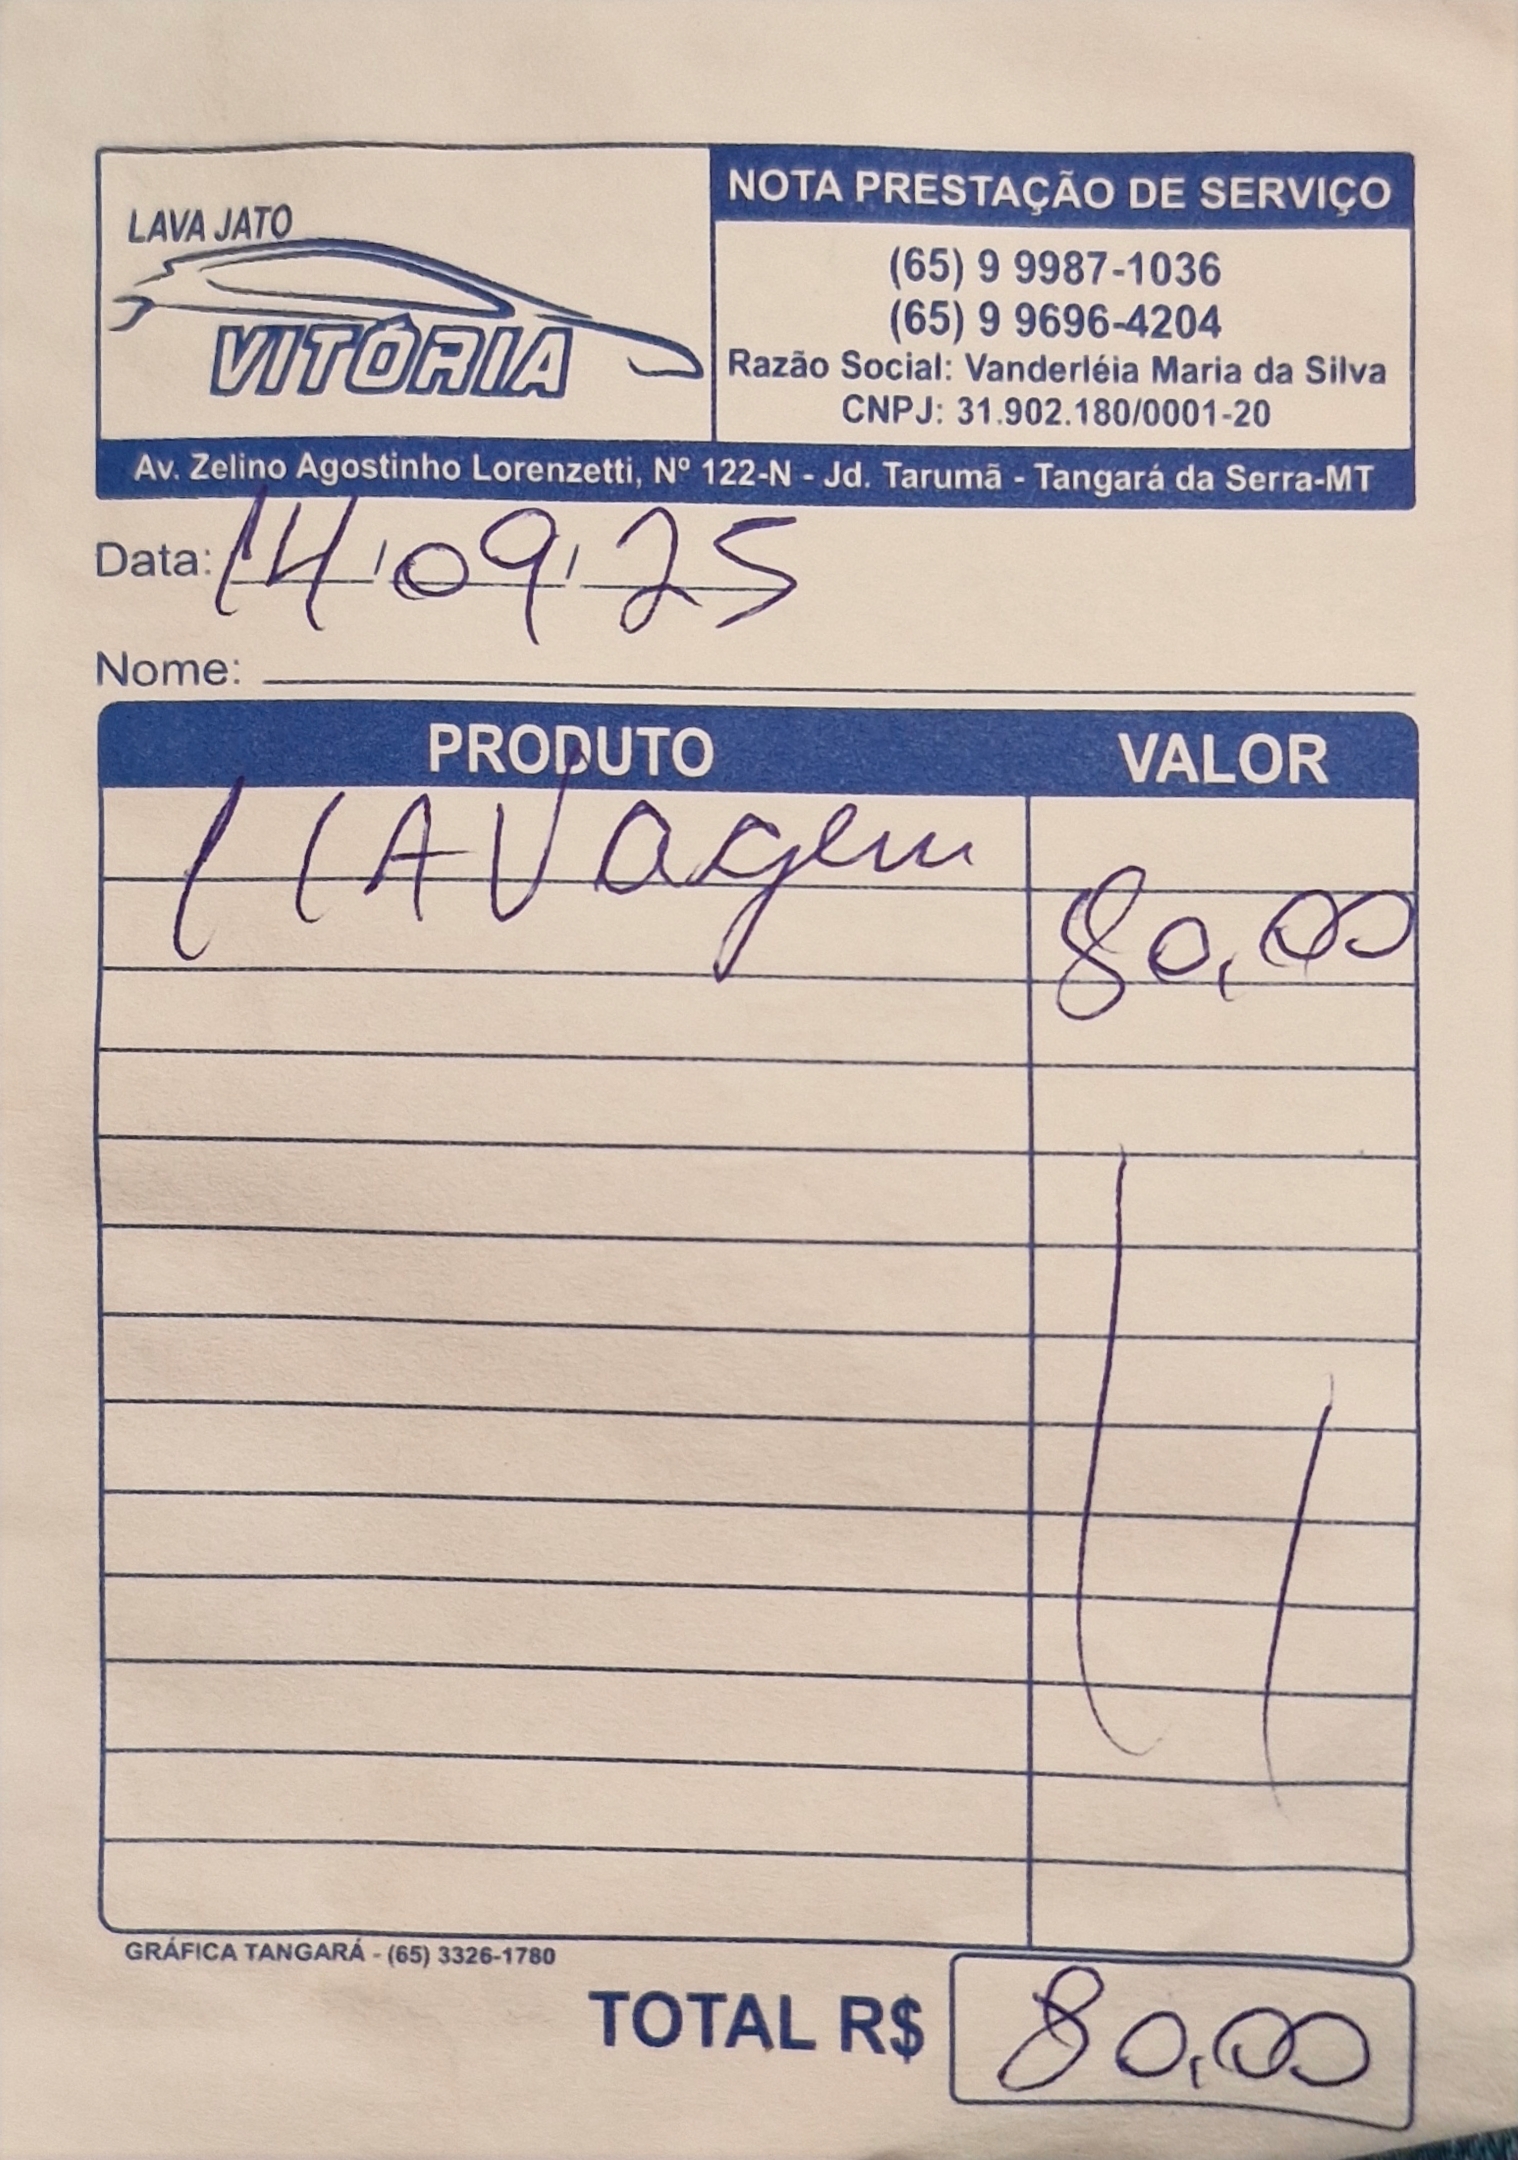 LAVA JATO
VITÓRIA
NOTA PRESTAÇÃO DE SERVIÇO
(65) 9 9987-1036
(65) 9 9696-4204
Razão Social: Vanderléia Maria da Silva
CNPJ: 31.902.180/0001-20
Av. Zelino Agostinho Lorenzetti, Nº 122-N - Jd. Tarumã - Tangará da Serra-MT
Data: 14/09/25
Nome:
PRODUTO VALOR
1 LAVagem 80,00
GRÁFICA TANGARÁ - (65) 3326-1780
TOTAL R$ 80,00